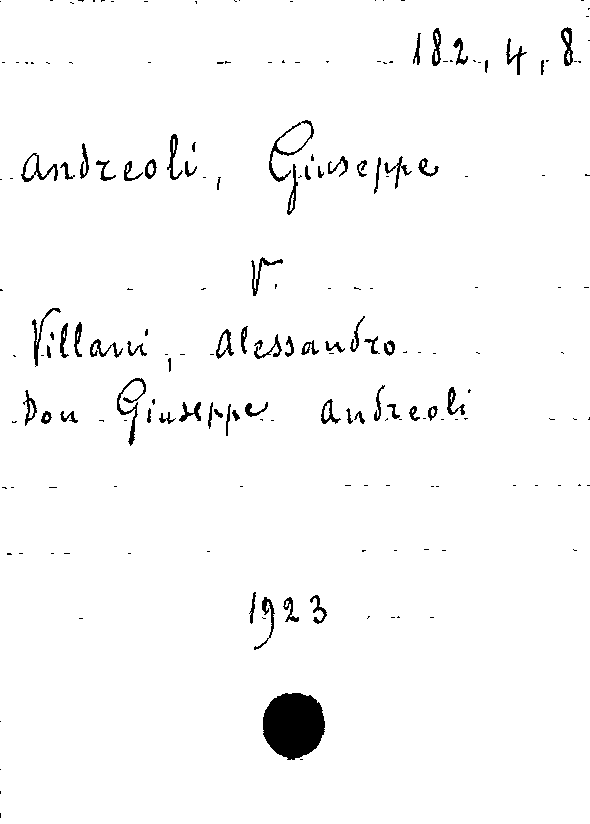 182, 4, 8
Andreoli, Giuseppe
V.
Villani, Alessandro
Don Giuseppe Andreoli
1923